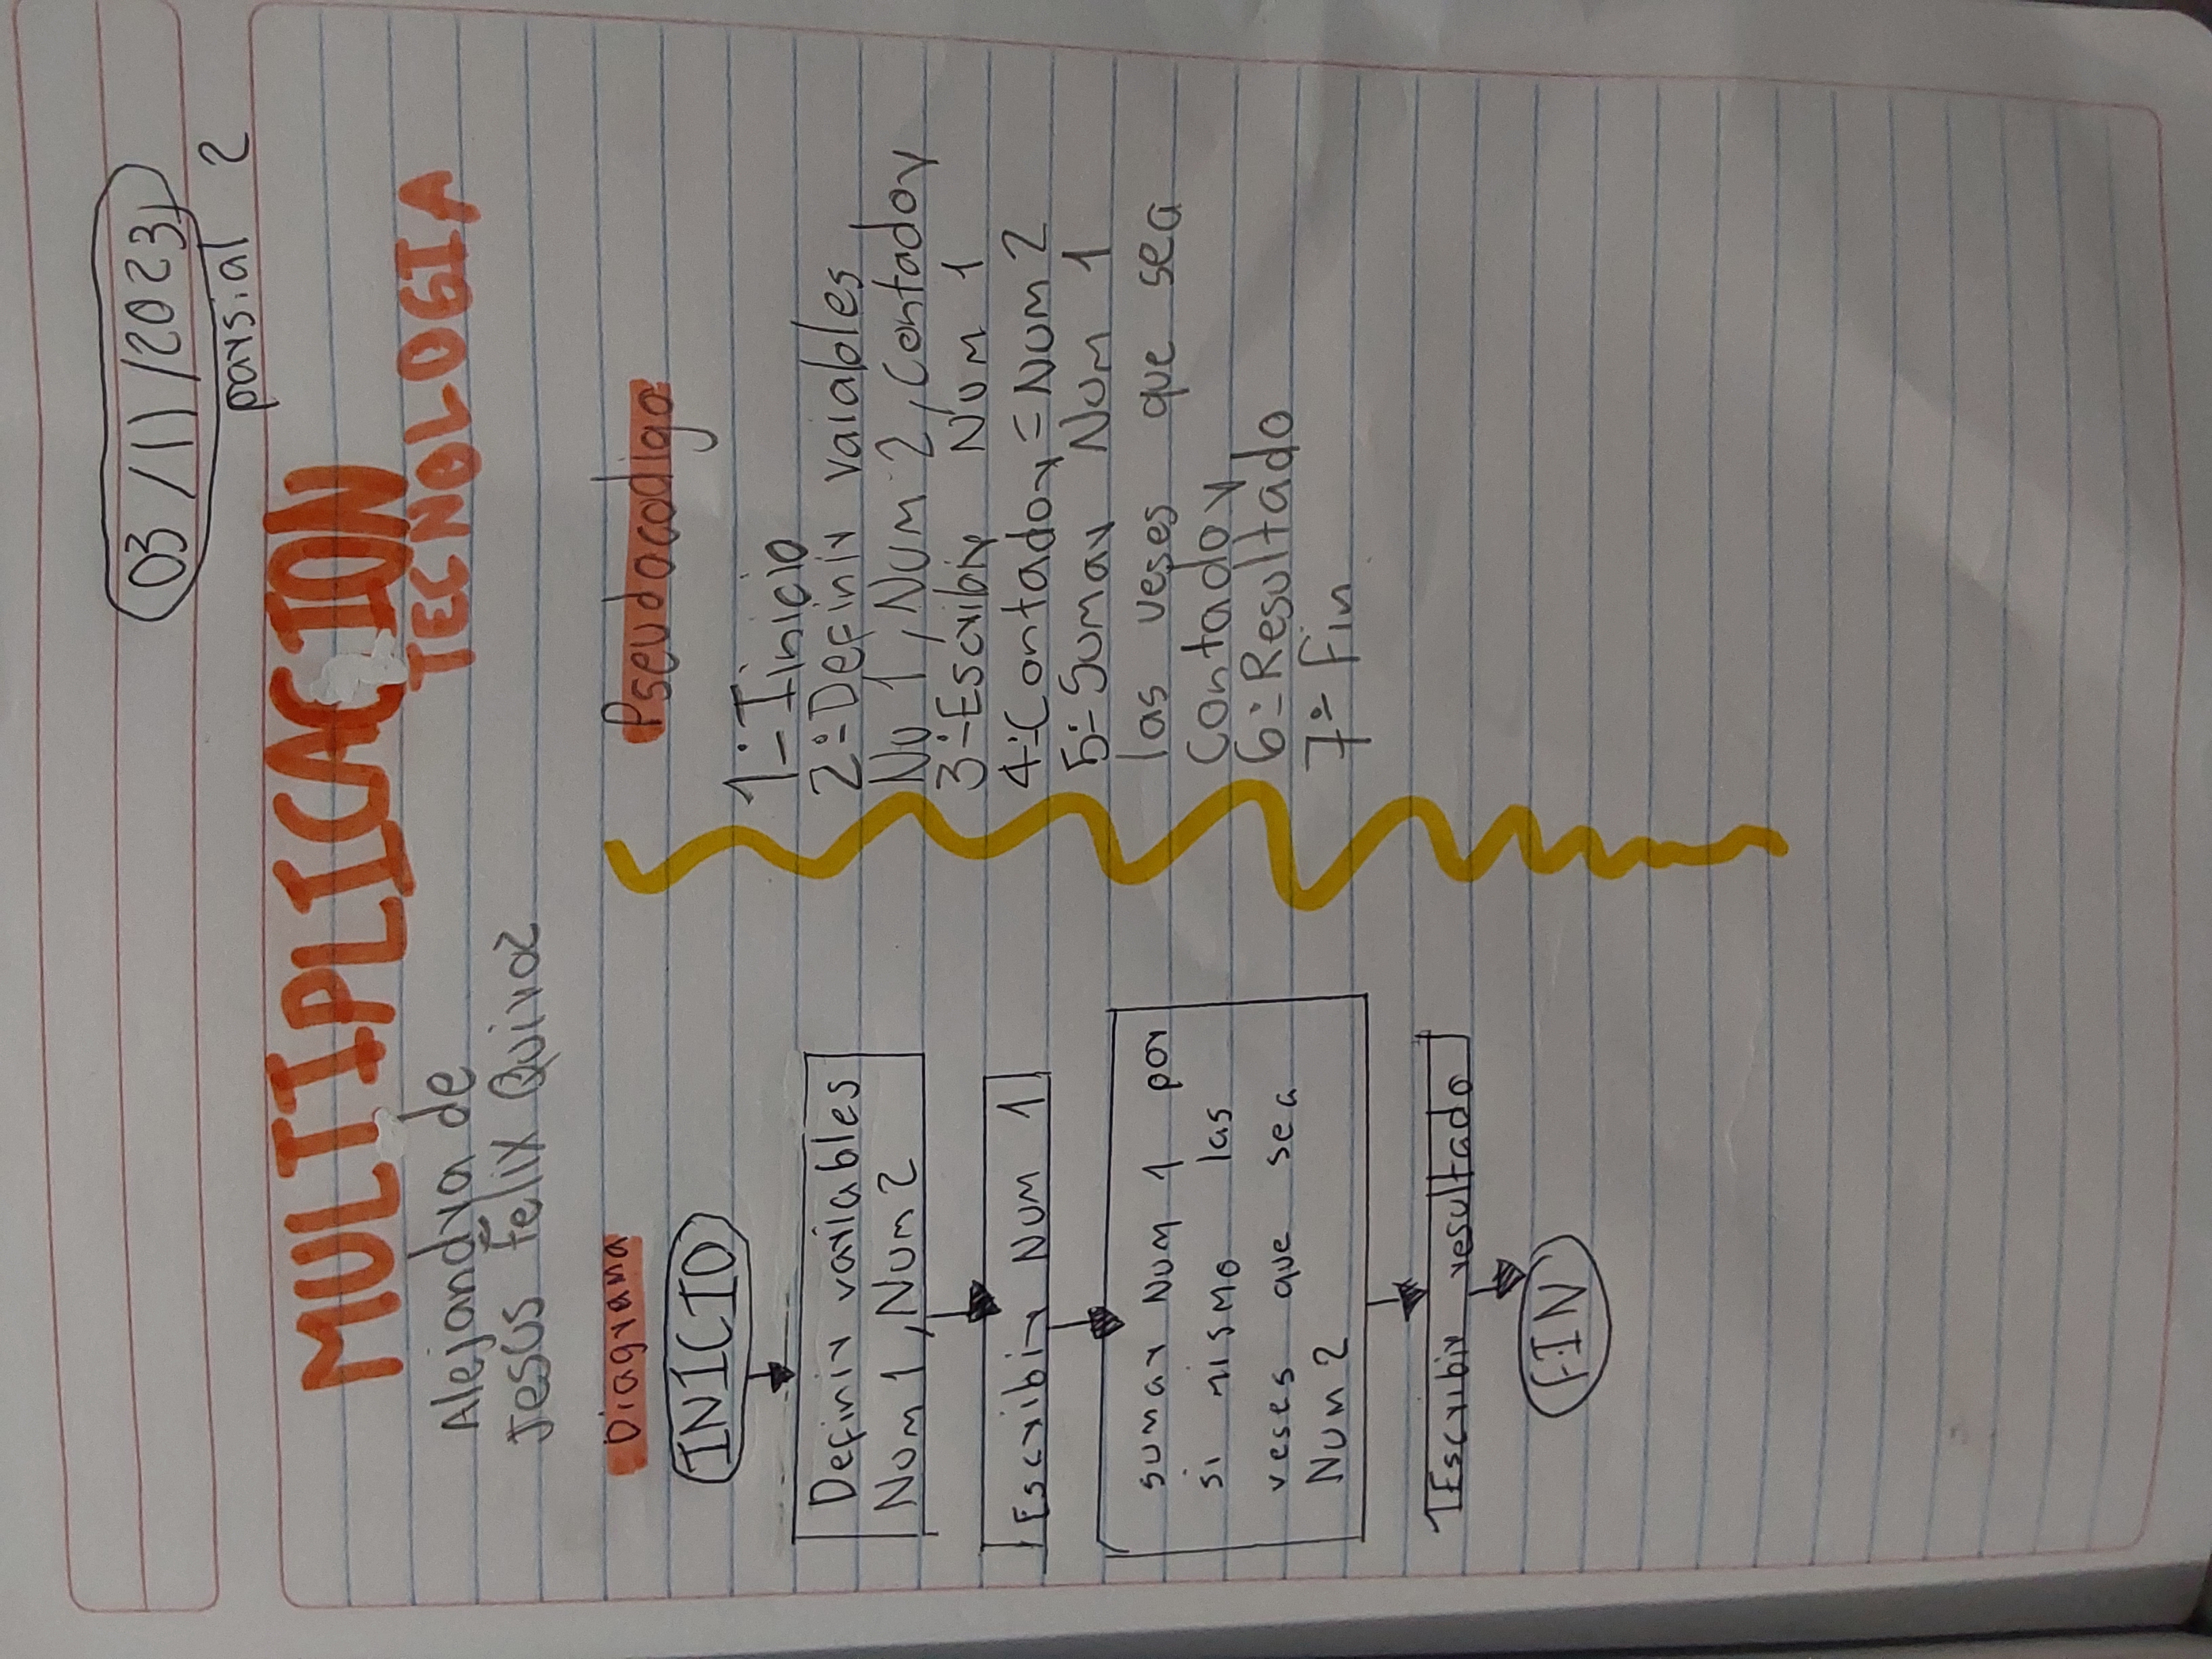 03/11/2023
parsial 2
MULTIPLICACION
TECNOLOGIA
Alejandra de
Jesus Felix Quiroz
Diagrama
INICIO
Definir variables
Num 1, Num 2
Escribir Num 1
sumar Num 1 por
si mismo las
veses que sea
Num 2
Escribir resultado
FIN
Pseudocodigo
1.-Iinicio
2.-Definir vaiables
Nu 1, Num 2, Contador
3.-Escribir Num 1
4.-Contador=Num 2
5.-Sumar Num 1
las veses que sea
Contador
6.-Resultado
7.-Fin